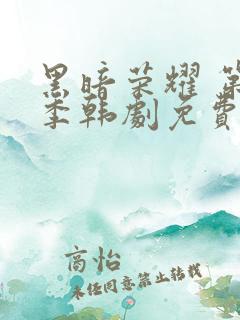 黑暗荣耀 第
季韩劇免費
高怡
未经同意禁止转载